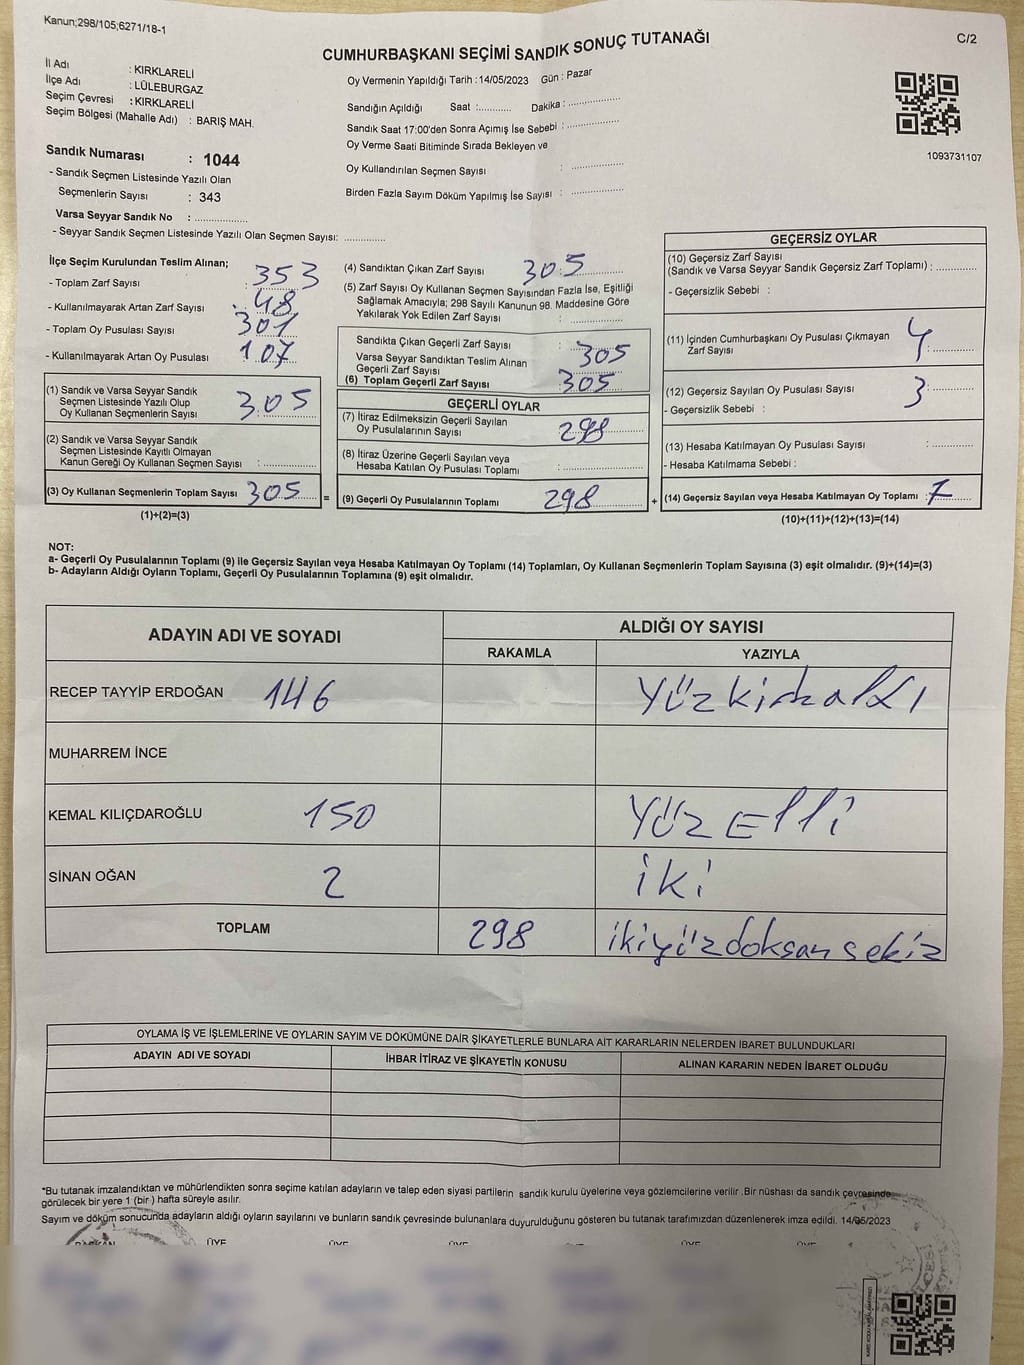 Kanun;298/105;6271/18-1
C/2
CUMHURBAŞKANI SEÇİMİ SANDIK SONUÇ TUTANAĞI
İl Adı : KIRKLARELİ
İlçe Adı : LÜLEBURGAZ
Seçim Çevresi : KIRKLARELİ
Seçim Bölgesi (Mahalle Adı) : BARIŞ MAH.
Sandık Numarası : 1044
- Sandık Seçmen Listesinde Yazılı Olan
Seçmenlerin Sayısı : 343
Varsa Seyyar Sandık No : ..............
- Seyyar Sandık Seçmen Listesinde Yazılı Olan Seçmen Sayısı: ............
Oy Vermenin Yapıldığı Tarih : 14/05/2023 Gün : Pazar
Sandığın Açıldığı Saat :.......... Dakika : ..............
Sandık Saat 17:00'den Sonra Açımış İse Sebebi : ..............
Oy Verme Saati Bitiminde Sırada Bekleyen ve
Oy Kullandırılan Seçmen Sayısı : ..............
Birden Fazla Sayım Döküm Yapılmış İse Sayısı : ..............
1093731107
İlçe Seçim Kurulundan Teslim Alınan;
- Toplam Zarf Sayısı : 353
- Kullanılmayarak Artan Zarf Sayısı : 48
- Toplam Oy Pusulası Sayısı : 301
- Kullanılmayarak Artan Oy Pusulası : 107
(1) Sandık ve Varsa Seyyar Sandık
Seçmen Listesinde Yazılı Olup
Oy Kullanan Seçmenlerin Sayısı : 305
(2) Sandık ve Varsa Seyyar Sandık
Seçmen Listesinde Kayıtlı Olmayan
Kanun Gereği Oy Kullanan Seçmen Sayısı : ..............
(3) Oy Kullanan Seçmenlerin Toplam Sayısı : 305
(1)+(2)=(3)
(4) Sandıktan Çıkan Zarf Sayısı : 305
(5) Zarf Sayısı Oy Kullanan Seçmen Sayısından Fazla İse, Eşitliği
Sağlamak Amacıyla; 298 Sayılı Kanunun 98. Maddesine Göre
Yakılarak Yok Edilen Zarf Sayısı : ..............
Sandıkta Çıkan Geçerli Zarf Sayısı : 305
Varsa Seyyar Sandıktan Teslim Alınan
Geçerli Zarf Sayısı :
(6) Toplam Geçerli Zarf Sayısı : 305
GEÇERLİ OYLAR
(7) İtiraz Edilmeksizin Geçerli Sayılan
Oy Pusulalarının Sayısı : 298
(8) İtiraz Üzerine Geçerli Sayılan veya
Hesaba Katılan Oy Pusulası Toplamı : ..............
= (9) Geçerli Oy Pusulalarının Toplamı 298
GEÇERSİZ OYLAR
(10) Geçersiz Zarf Sayısı
(Sandık ve Varsa Seyyar Sandık Geçersiz Zarf Toplamı) : ............
- Geçersizlik Sebebi :
(11) İçinden Cumhurbaşkanı Oy Pusulası Çıkmayan
Zarf Sayısı : 4
(12) Geçersiz Sayılan Oy Pusulası Sayısı : 3
- Geçersizlik Sebebi :
(13) Hesaba Katılmayan Oy Pusulası Sayısı : ............
- Hesaba Katılmama Sebebi :
+ (14) Geçersiz Sayılan veya Hesaba Katılmayan Oy Toplamı : 7
(10)+(11)+(12)+(13)=(14)
NOT:
a- Geçerli Oy Pusulalarının Toplamı (9) ile Geçersiz Sayılan veya Hesaba Katılmayan Oy Toplamı (14) Toplamları, Oy Kullanan Seçmenlerin Toplam Sayısına (3) eşit olmalıdır. (9)+(14)=(3)
b- Adayların Aldığı Oyların Toplamı, Geçerli Oy Pusulalarının Toplamına (9) eşit olmalıdır.
ADAYIN ADI VE SOYADI ALDIĞI OY SAYISI
RAKAMLA YAZIYLA
RECEP TAYYİP ERDOĞAN 146 Yüzkırkaltı
MUHARREM İNCE
KEMAL KILIÇDAROĞLU 150 Yüz Elli
SİNAN OĞAN 2 iki
TOPLAM 298 ikiyüzdoksan sekiz
OYLAMA İŞ VE İŞLEMLERİNE VE OYLARIN SAYIM VE DÖKÜMÜNE DAİR ŞİKAYETLERLE BUNLARA AİT KARARLARIN NELERDEN İBARET BULUNDUKLARI
ADAYIN ADI VE SOYADI İHBAR İTİRAZ VE ŞİKAYETİN KONUSU ALINAN KARARIN NEDEN İBARET OLDUĞU
*Bu tutanak imzalandıktan ve mühürlendikten sonra seçime katılan adayların ve talep eden siyasi partilerin sandık kurulu üyelerine veya gözlemcilerine verilir .Bir nüshası da sandık çevresinde
görülecek bir yere 1 (bir ) hafta süreyle asılır.
Sayım ve döküm sonucunda adayların aldığı oyların sayılarını ve bunların sandık çevresinde bulunanlara duyurulduğunu gösteren bu tutanak tarafımızdan düzenlenerek imza edildi. 14/05/2023
BAŞKAN ÜYE ÜYE ÜYE ÜYE ÜYE ÜYE